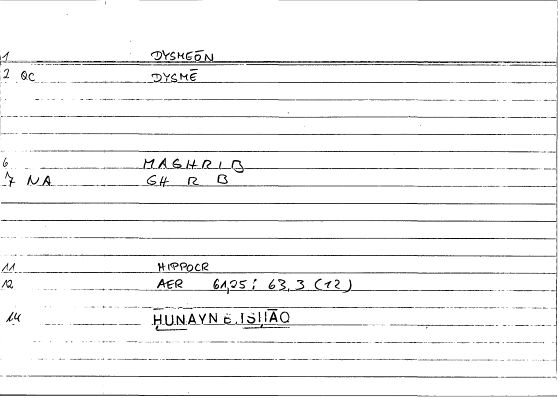 1 DYSMEŌN
2 QC DYSMĒ
6 MAGHRIB
7 NA GH R B
11 HIPPOCR
12 AER 61,25; 63,3 (12)
14 ḤUNAYN B. ISḤĀQ